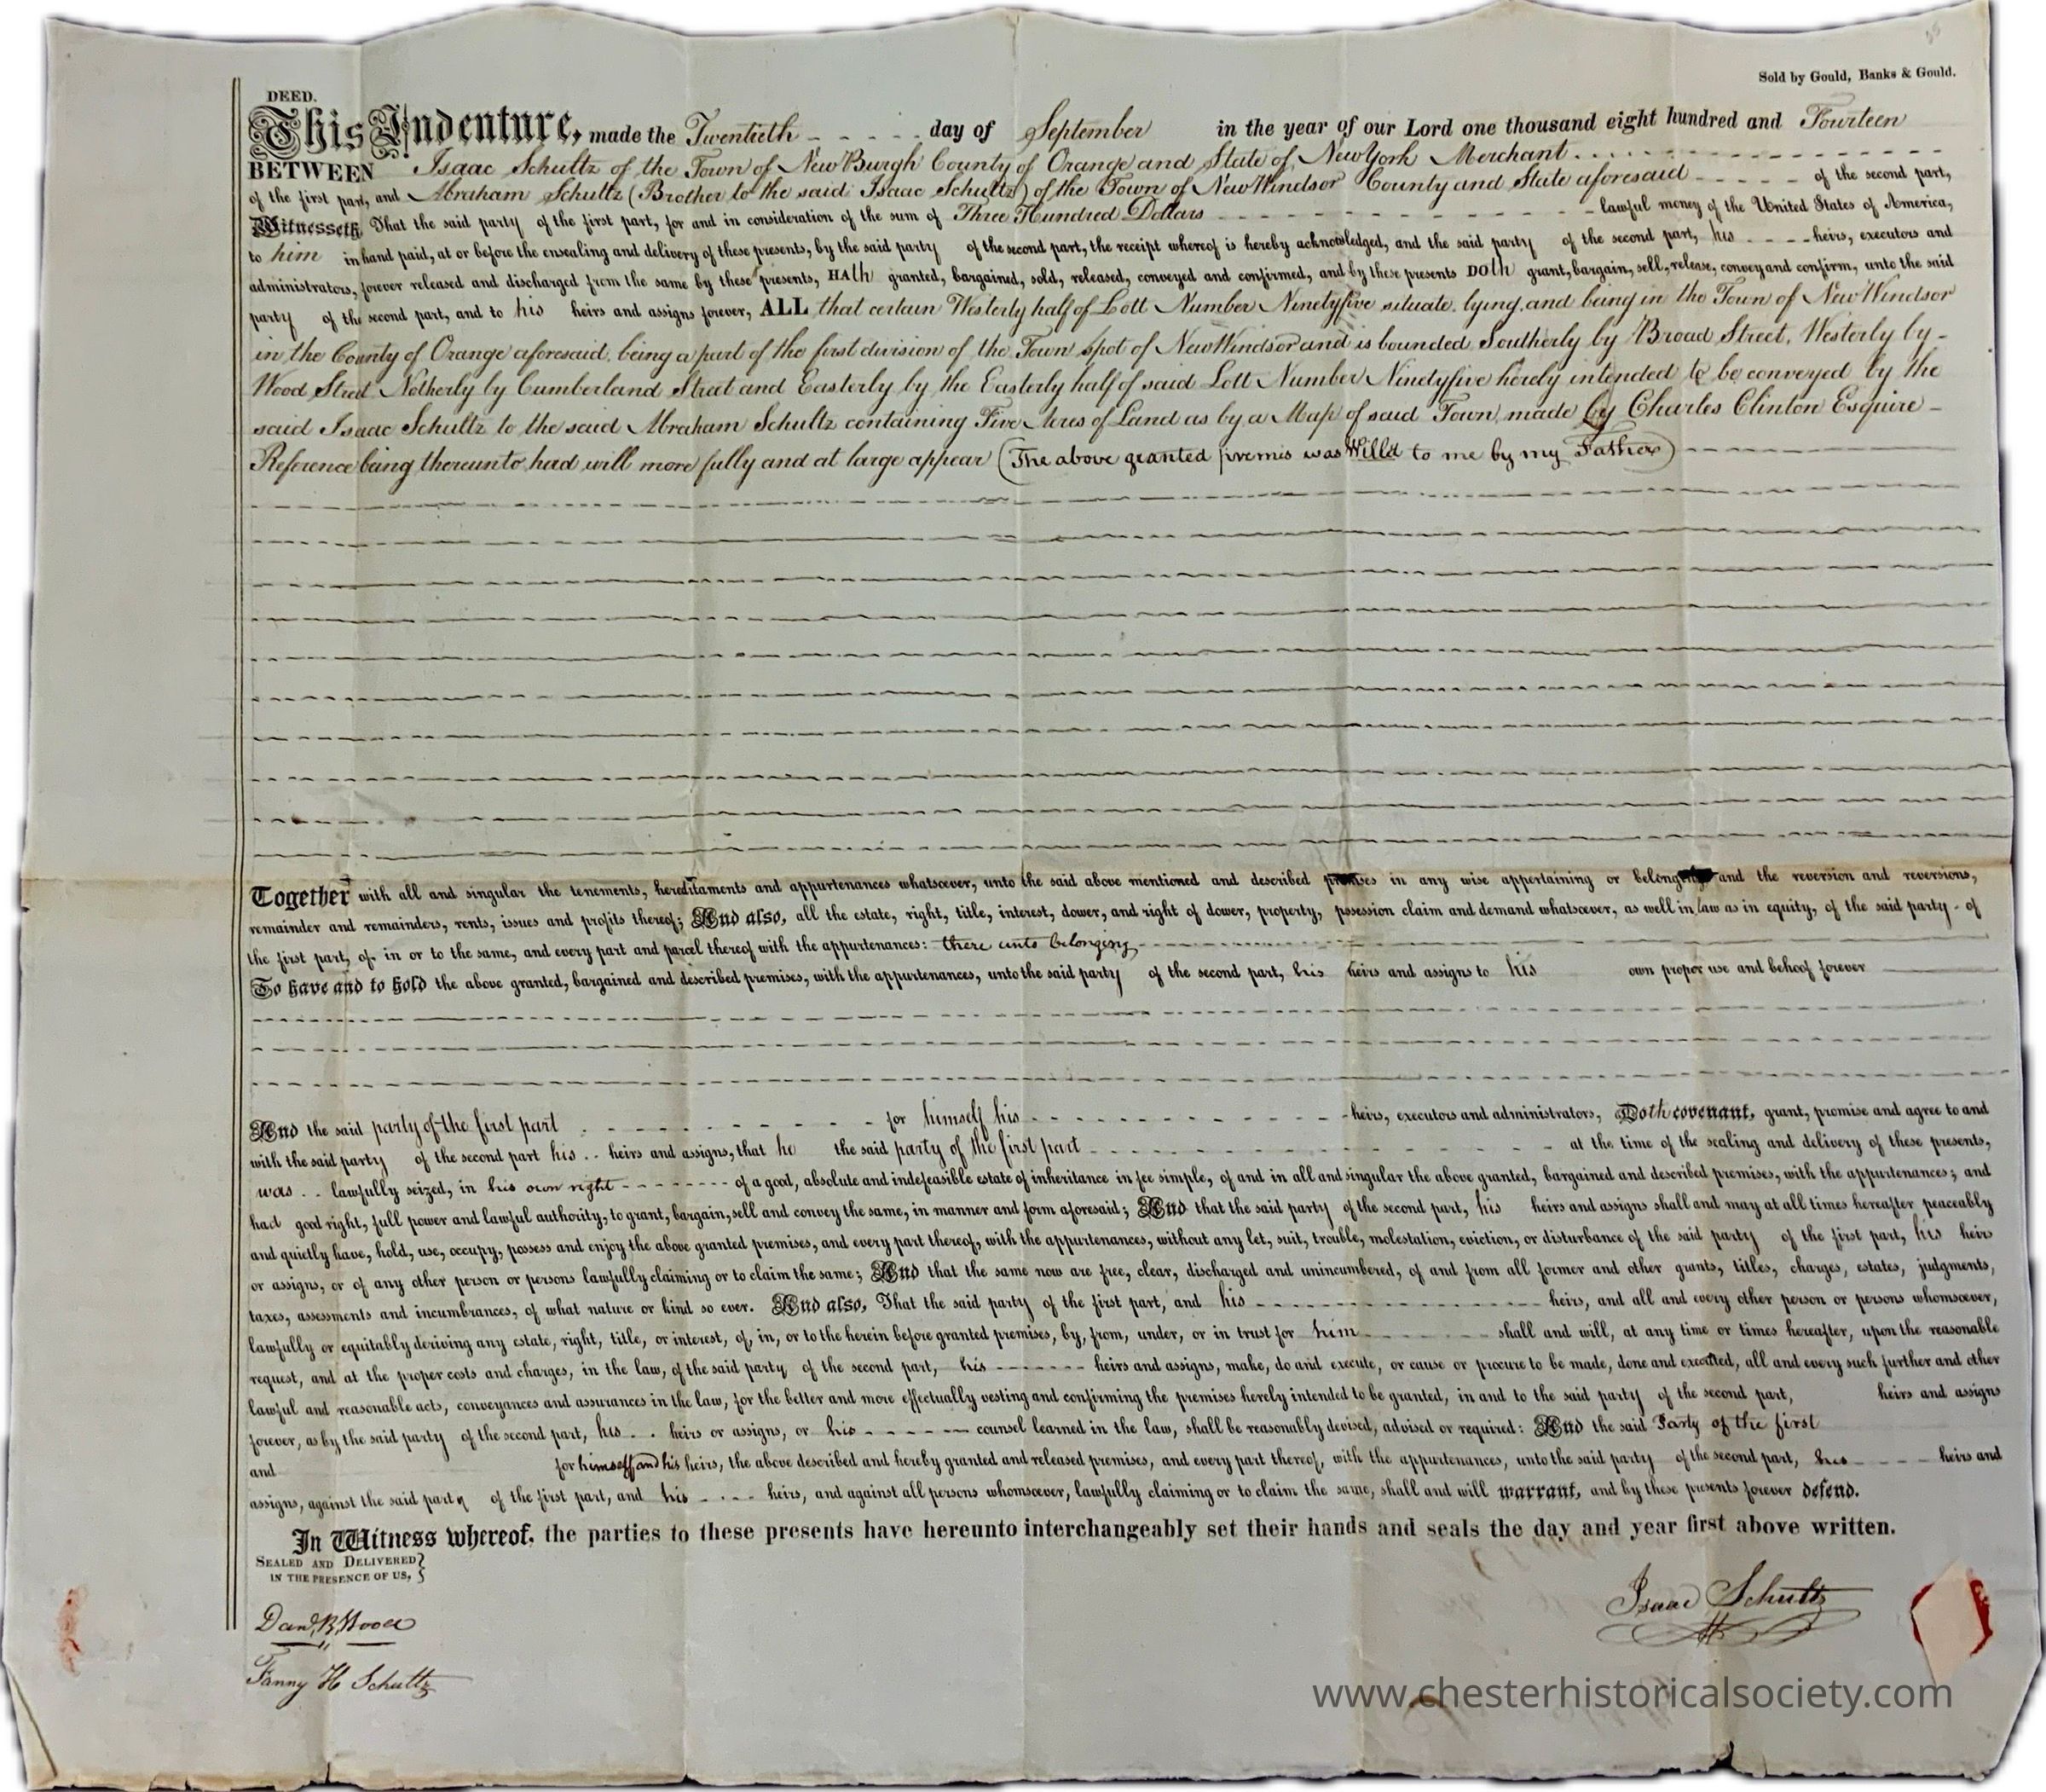 Sold by Gould, Banks & Gould.
DEED.
This Indenture, made the Twentieth day of September in the year of our Lord one thousand eight hundred and Fourteen
BETWEEN Isaac Schultz of the Town of NewBurgh County of Orange and State of NewYork Merchant
of the first part, and Abraham Schultz (Brother to the said Isaac Schultz) of the Town of NewWindsor County and State aforesaid of the second part,
Witnesseth, That the said party of the first part, for and in consideration of the sum of Three Hundred Dollars lawful money of the United States of America,
to him in hand paid, at or before the ensealing and delivery of these presents, by the said party of the second part, the receipt whereof is hereby acknowledged, and the said party of the second part, his heirs, executors and
administrators, forever released and discharged from the same by these presents, HAth granted, bargained, sold, released, conveyed and confirmed, and by these presents DOth grant, bargain, sell, release, convey and confirm, unto the said
party of the second part, and to his heirs and assigns forever, ALL that certain Westerly half of Lott Number Ninetyfive situate, lying, and being in the Town of NewWindsor
in the County of Orange aforesaid, being a part of the first division of the Town spot of NewWindsor and is bounded Southerly by Broad Street, Westerly by
Wood Street Notherly by Cumberland Street and Easterly by the Easterly half of said Lott Number Ninetyfive hereby intended to be conveyed by the
said Isaac Schultz to the said Abraham Schultz containing Five Acres of Land as by a Map of said Town, made by Charles Clinton Esquire
Reference being thereunto had will more fully and at large appear (The above granted premis was Willd to me by my Father)
Together with all and singular the tenements, hereditaments and appurtenances whatsoever, unto the said above mentioned and described premises in any wise appertaining or belonging and the reversion and reversions,
remainder and remainders, rents, issues and profits thereof; And also, all the estate, right, title, interest, dower, and right of dower, property, possession claim and demand whatsoever, as well in law as in equity, of the said party of
the first part, of, in or to the same, and every part and parcel thereof with the appurtenances: there unto belonging
To have and to hold the above granted, bargained and described premises, with the appurtenances, unto the said party of the second part, his heirs and assigns to his own proper use and behoof forever
And the said party of the first part for himself his heirs, executors and administrators, Doth covenant, grant, promise and agree to and
with the said party of the second part his heirs and assigns, that he the said party of the first part at the time of the sealing and delivery of these presents,
was lawfully seized, in his own right of a good, absolute and indefeasible estate of inheritance in fee simple, of and in all and singular the above granted, bargained and described premises, with the appurtenances; and
had good right, full power and lawful authority, to grant, bargain, sell and convey the same, in manner and form aforesaid; And that the said party of the second part, his heirs and assigns shall and may at all times hereafter peaceably
and quietly have, hold, use, occupy, possess and enjoy the above granted premises, and every part thereof, with the appurtenances, without any let, suit, trouble, molestation, eviction, or disturbance of the said party of the first part, his heirs
or assigns, or of any other person or persons lawfully claiming or to claim the same; And that the same now are free, clear, discharged and unincumbered, of and from all former and other grants, titles, charges, estates, judgments,
taxes, assessments and incumbrances, of what nature or kind so ever. And also, That the said party of the first part, and his heirs, and all and every other person or persons whomsoever,
lawfully or equitably deriving any estate, right, title, or interest, of, in, or to the herein before granted premises, by, from, under, or in trust for him shall and will, at any time or times hereafter, upon the reasonable
request, and at the proper costs and charges, in the law, of the said party of the second part, his heirs and assigns, make, do and execute, or cause or procure to be made, done and executed, all and every such further and other
lawful and reasonable acts, conveyances and assurances in the law, for the better and more effectually vesting and confirming the premises hereby intended to be granted, in and to the said party of the second part, heirs and assigns
forever, as by the said party of the second part, his heirs or assigns, or his counsel learned in the law, shall be reasonably devised, advised or required: And the said Party of the first
and for himself and his heirs, the above described and hereby granted and released premises, and every part thereof, with the appurtenances, unto the said party of the second part, his heirs and
assigns, against the said party of the first part, and his heirs, and against all persons whomsoever, lawfully claiming or to claim the same, shall and will warrant, and by these presents forever defend.
In Witness whereof, the parties to these presents have hereunto interchangeably set their hands and seals the day and year first above written.
SEALED AND DELIVERED
IN THE PRESENCE OF US,
Isaac Schultz
Fanny H Schultz
www.chesterhistoricalsociety.com